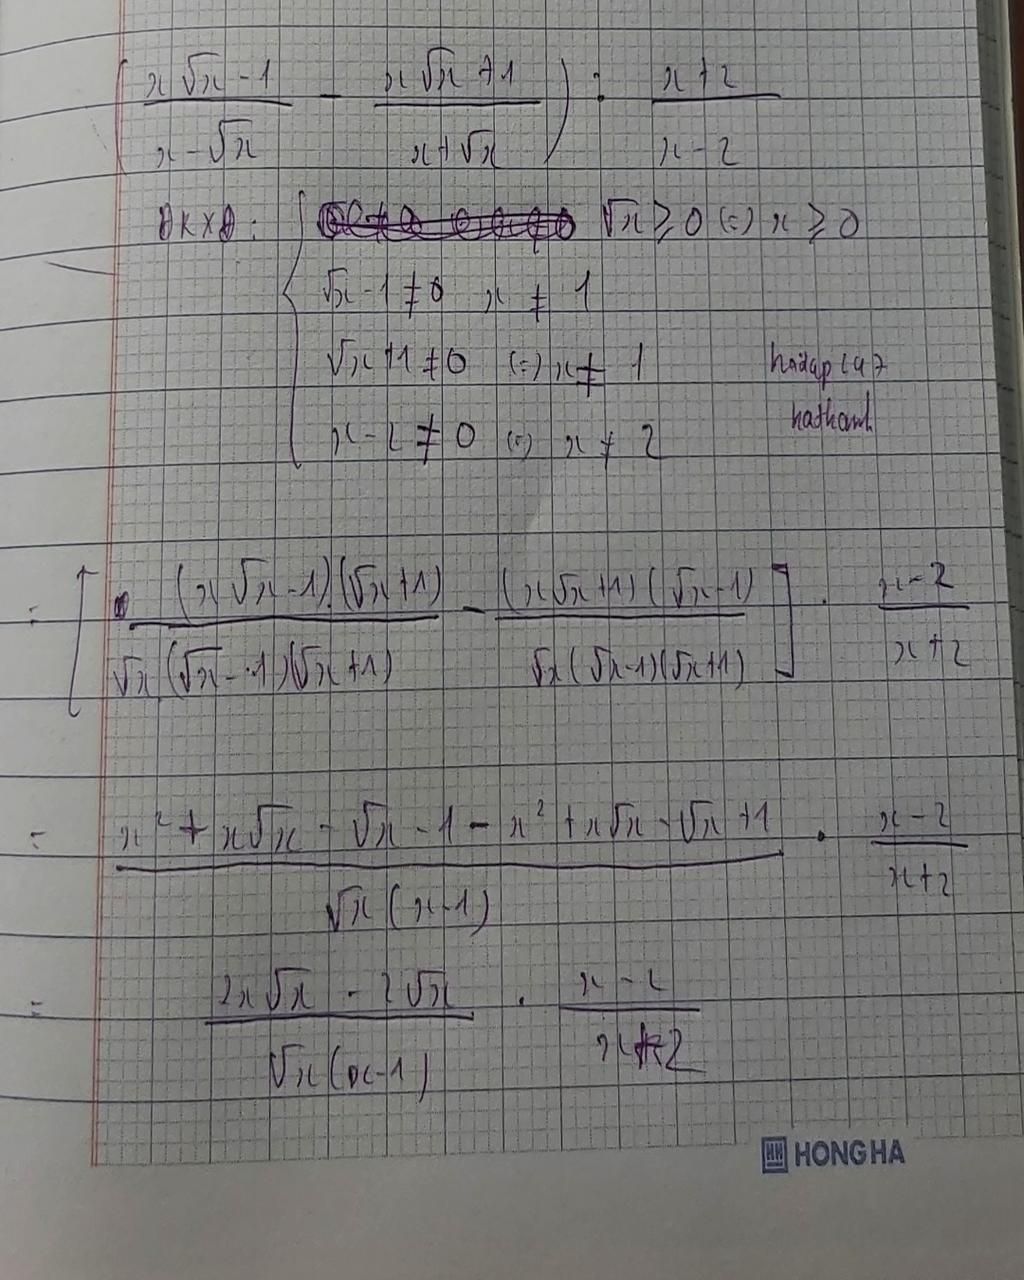 ( x√x - 1 / x - √x - x√x + 1 / x + √x ) : x + 2 / x - 2
ĐKXĐ: { √x ≥ 0 (=) x ≥ 0
√x - 1 ≠ 0 x ≠ 1
√x + 1 ≠ 0 (=) x ≠ 1
x - 2 ≠ 0 (=) x ≠ 2
= [ (x√x - 1).(√x + 1) / √x.(√x - 1)(√x + 1) - (x√x + 1)(√x - 1) / √x(√x - 1)(√x + 1) ] . x - 2 / x + 2
= x² + x√x - √x - 1 - x² + x√x - √x + 1 / √x(x - 1) . x - 2 / x + 2
= 2x√x - 2√x / √x(x - 1) . x - 2 / x + 2
HONG HA